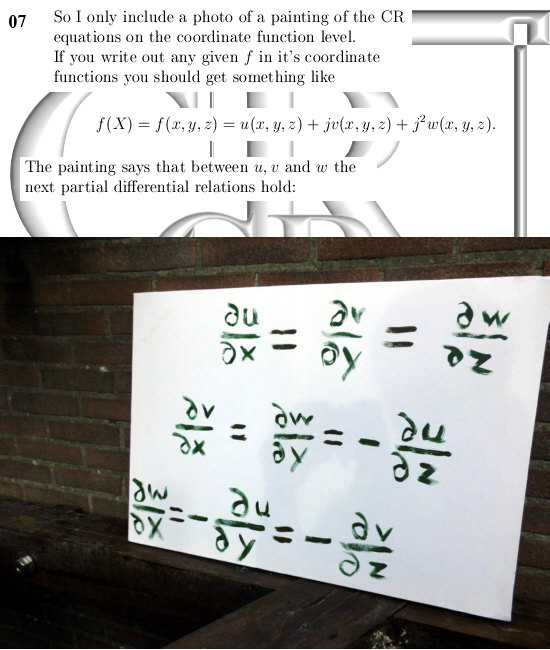 07 So I only include a photo of a painting of the CR
equations on the coordinate function level.
If you write out any given f in it's coordinate
functions you should get something like
f(X) = f(x, y, z) = u(x, y, z) + jv(x, y, z) + j²w(x, y, z).
The painting says that between u, v and w the
next partial differential relations hold:
∂u/∂x = ∂v/∂y = ∂w/∂z
∂v/∂x = ∂w/∂y = -∂u/∂z
∂w/∂x = -∂u/∂y = -∂v/∂z